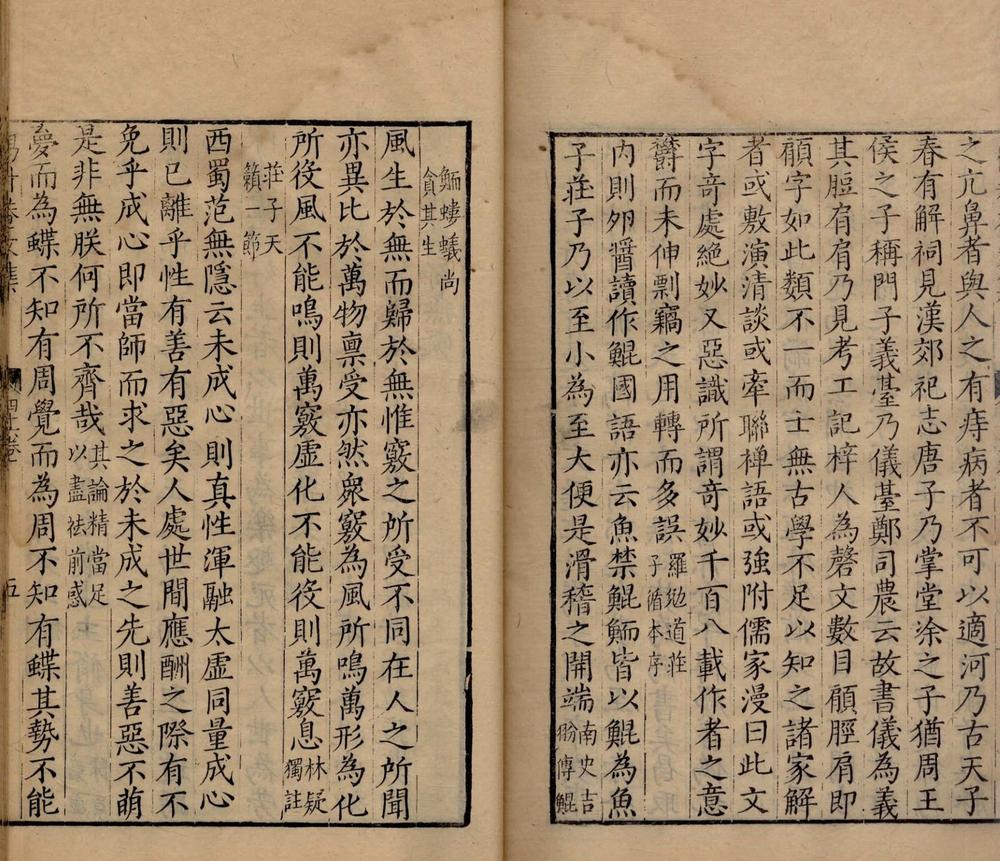 之亢鼻者與人之有痔病者不可以適河乃古天子
春有解祠見漢郊祀志唐子乃掌堂涂之子猶周王
侯之子稱門子義臺乃儀臺鄭司農云故書儀為義
其脰肩肩乃見考工記梓人為磬文數目顧脛肩即
顧字如此類不一而士無古學不足以知之諸家解
者或敷演清談或牽聯禪語或強附儒家漫曰此文
字奇處絶妙又惡識所謂奇妙千百八載作者之意
欝而未伸剽竊之用轉而多誤羅勉道莊
子循本序
内則卵醬讀作鯤國語亦云魚禁鯤鮞皆以鯤為魚
子莊子乃以至小為至大便是滑稽之開端南史吉
翂傳鯤
鮞螻蟻尚
貪其生
風生於無而歸於無惟竅之所受不同在人之所聞
亦異比於萬物禀受亦然衆竅為風所鳴萬形為化
所役風不能鳴則萬竅虚化不能役則萬竅息林疑
獨註
莊子天
籟一節
西蜀范無隱云未成心則真性渾融太虚同量成心
則已離乎性有善有惡矣人處世間應酬之際有不
免乎成心即當師而求之於未成之先則善惡不萌
是非無朕何所不齊哉其論精當足
以盡祛前惑
夢而為蝶不知有周覺而為周不知有蝶其勢不能
五